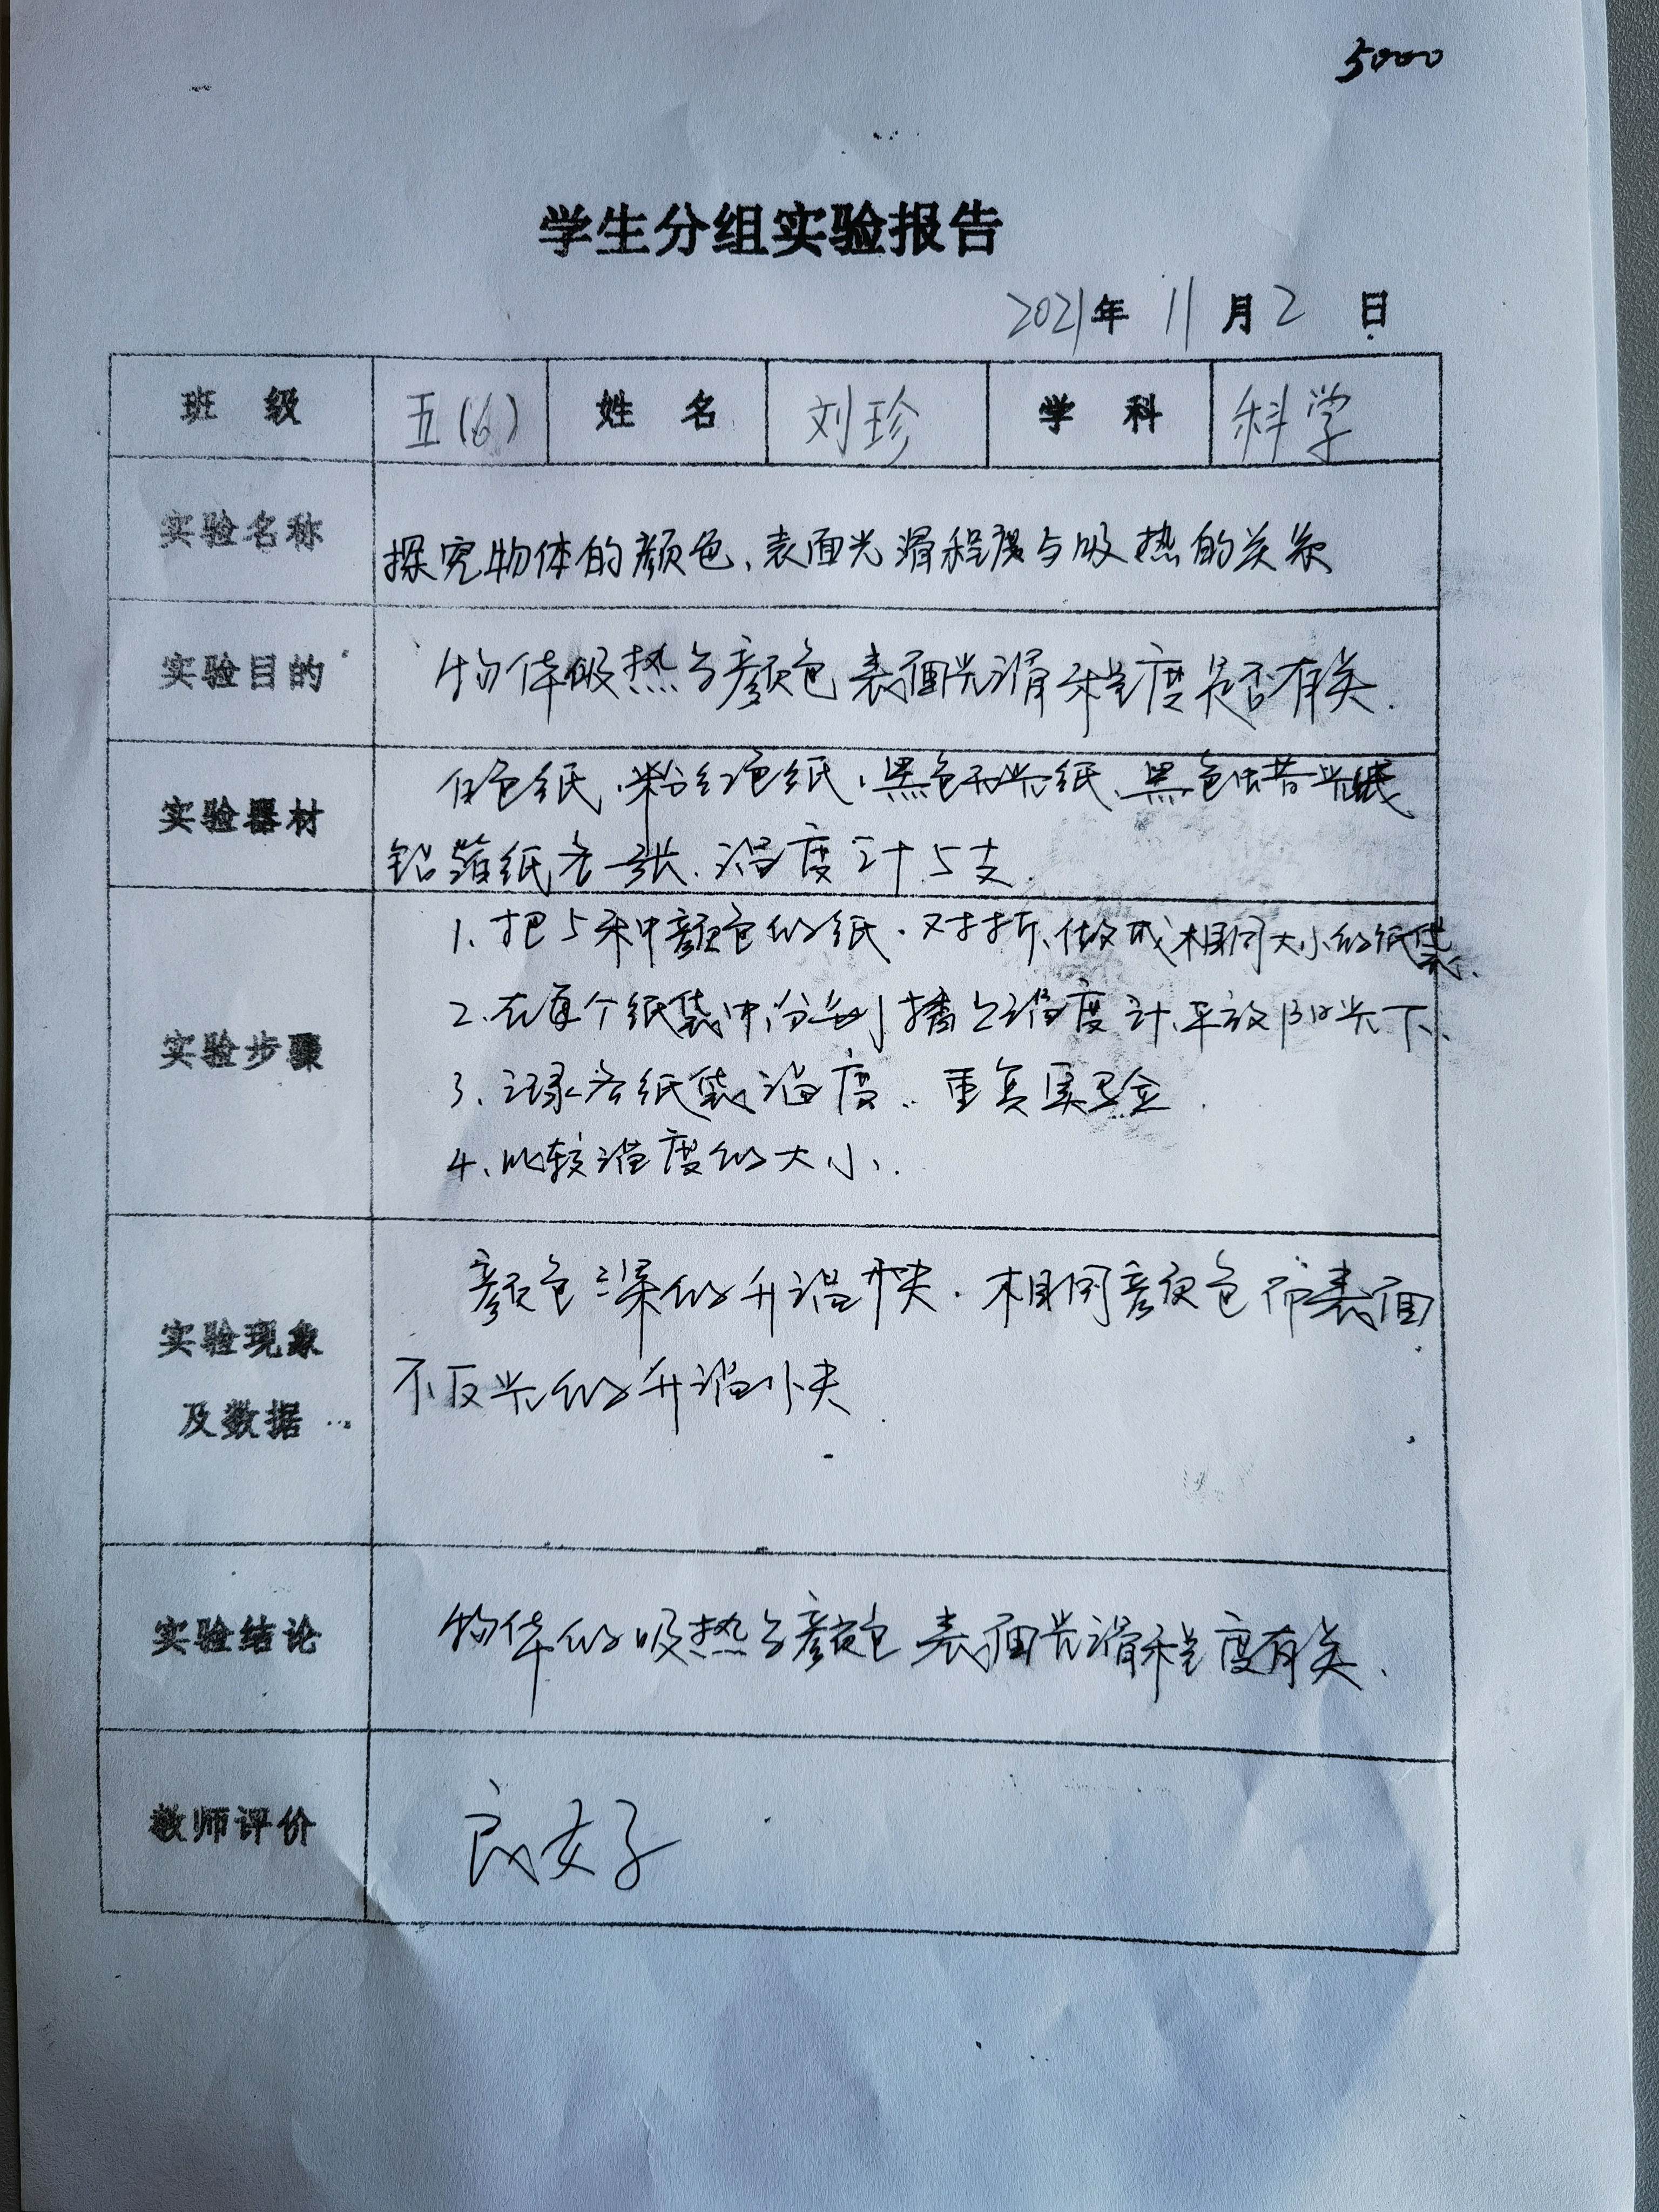 5000
学生分组实验报告
2021年 11 月 2 日
班 级 五(6) 姓 名 刘珍 学 科 科学
实验名称 探究物体的颜色、表面光滑程度与吸热的关系
实验目的 物体吸热与颜色表面光滑程度是否有关.
实验器材 白色纸、粉红色纸、黑色不光纸、黑色蜡光纸
铝箔纸各一张、温度计5支.
实验步骤
1、把5种颜色的纸、对折、做成相同大小的纸袋、
2、在每个纸袋中分别插上温度计、平放阳光下、
3、记录各纸袋温度、重复实验.
4、比较温度的大小、
实验现象及数据
颜色深的升温快、相同颜色而表面
不反光的升温快
实验结论 物体的吸热与颜色表面光滑程度有关、
教师评价 良好